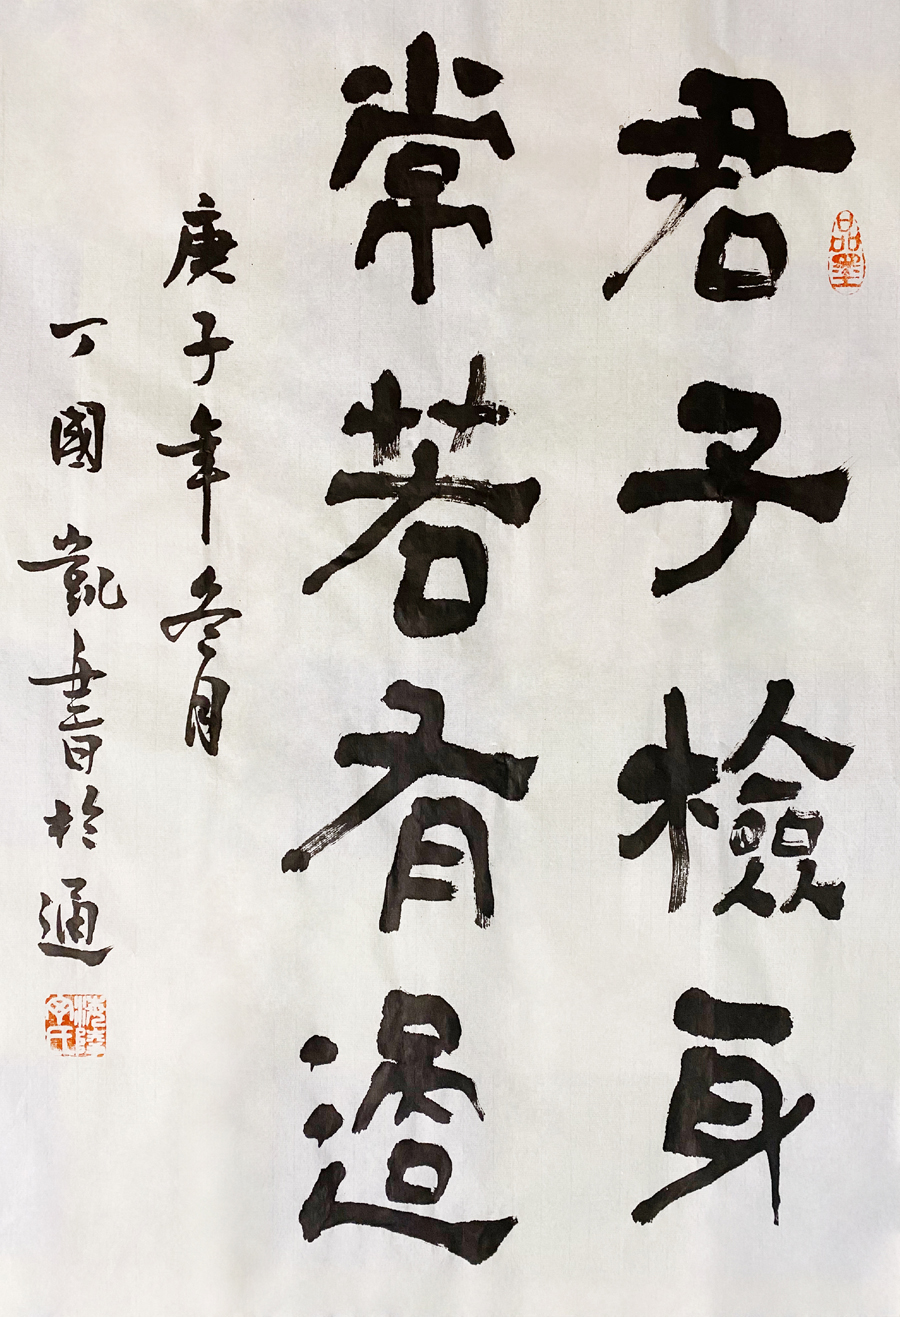 君子檢身
常若有過
庚子年冬月
丁國凱書於通
品墨